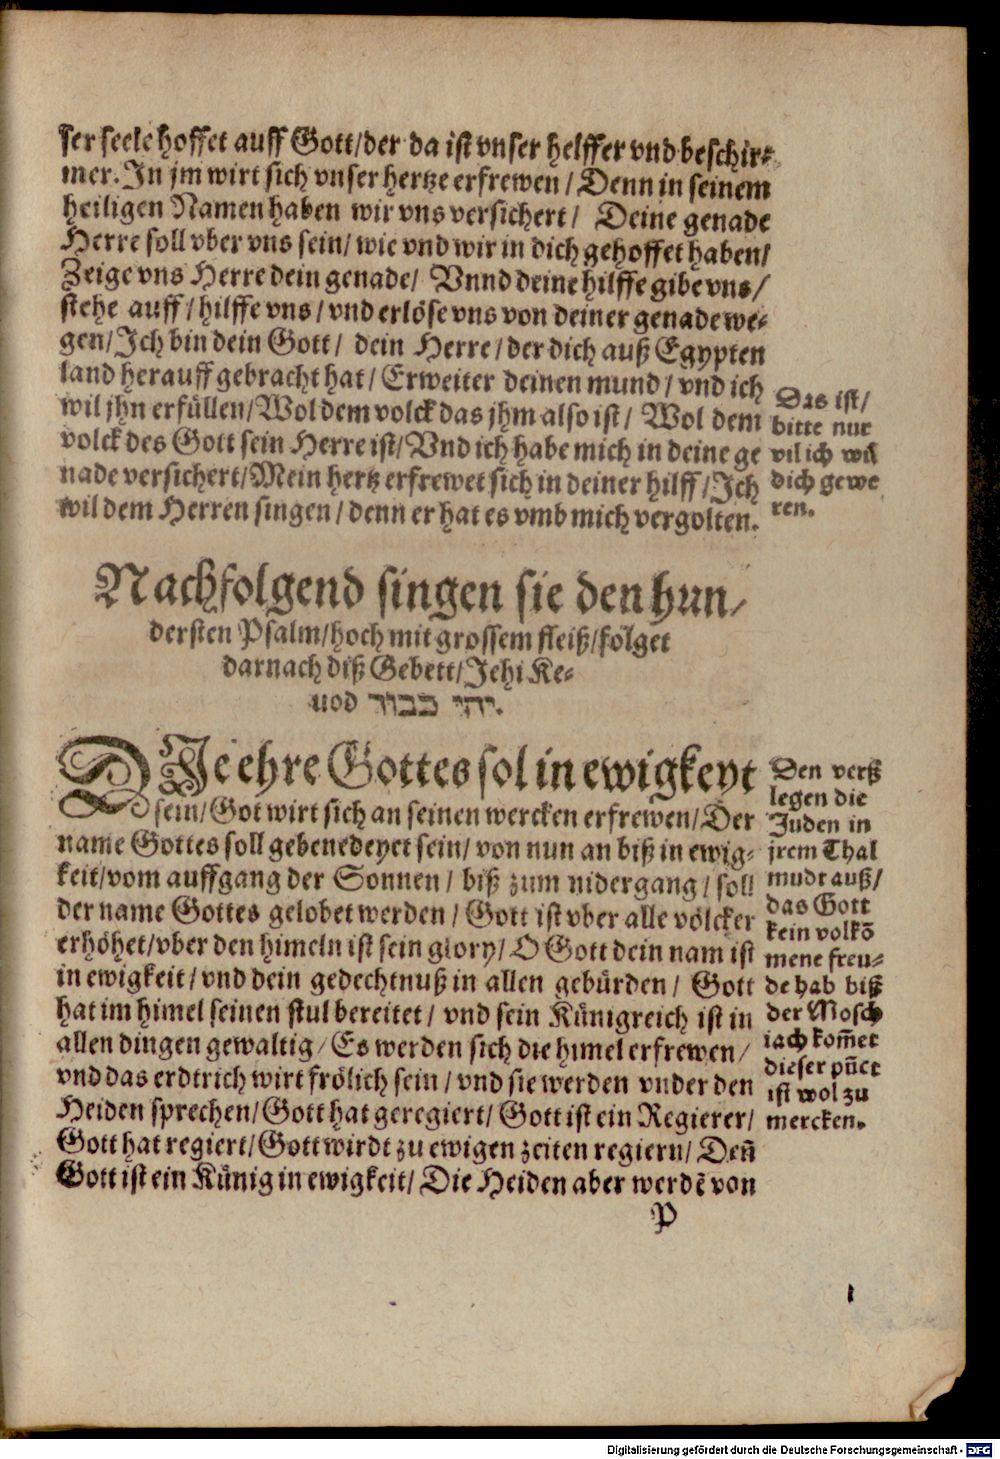 ser seele hoffet auff Gott/der da ist vnser helffer vnd beschir⸗
mer. In jm wirt sich vnser hertze erfrewen / Denn in seinem
heiligen Namen haben wir vns versichert / Deine genade
Herre soll vber vns sein/ wie vnd wir in dich gehoffet haben/
Zeige vns Herre dein genade/ Vnnd deine hilffe gibe vns/
stehe auff / hilffe vns / vnd erlöse vns von deiner genade we⸗
gen/Ich bin dein Gott / dein Herre / der dich auß Egypten
land herauff gebracht hat / Erweiter deinen mund / vnd ich
wil jhn erfüllen/Wol dem volck das jhm also ist / Wol dem
volck des Gott sein Herre ist/Vnd ich habe mich in deine ge
nade versichert/Mein hertz erfrewet sich in deiner hilff/Ich
wil dem Herren singen / denn er hat es vmb mich vergolten.
Das ist/
bitte nur
vil ich wil
dich gewe
ren.
Nachfolgend singen sie den hun⸗
dersten Psalm/hoch mit grossem fleiß/folget
darnach diß Gebett/Jehi Ke⸗
uod יהי כבוד.
DJe ehre Gottes sol in ewigkeyt
sein/Got wirt sich an seinen wercken erfrewen/Der
name Gottes soll gebenedeyet sein/ von nun an biß in ewig⸗
keit/vom auffgang der Sonnen / biß zum nidergang / soll
der name Gottes gelobet werden / Gott ist vber alle völcker
erhöhet/vber den himeln ist sein glory/ O Gott dein nam ist
in ewigkeit / vnd dein gedechtnuß in allen gebürden / Gott
hat im himel seinen stul bereitet / vnd sein Künigreich ist in
allen dingen gewaltig / Es werden sich die himel erfrewen /
vnd das erdtrich wirt frölich sein / vnd sie werden vnder den
Heiden sprechen/Gott hat geregiert/ Gott ist ein Regierer/
Gott hat regiert/Gott wirdt zu ewigen zeiten regiern/ Deñ
Gott ist ein Künig in ewigkeit/ Die Heiden aber werdē von
Den verß
legen die
Juden in
jrem Thal
mudt auß/
das Gott
kein volkõ
mene freu⸗
de hab biß
der Mosch
iach kom̃et
dieser pũct
ist wol zu
mercken.
P
Digitalisierung gefördert durch die Deutsche Forschungsgemeinschaft - DFG